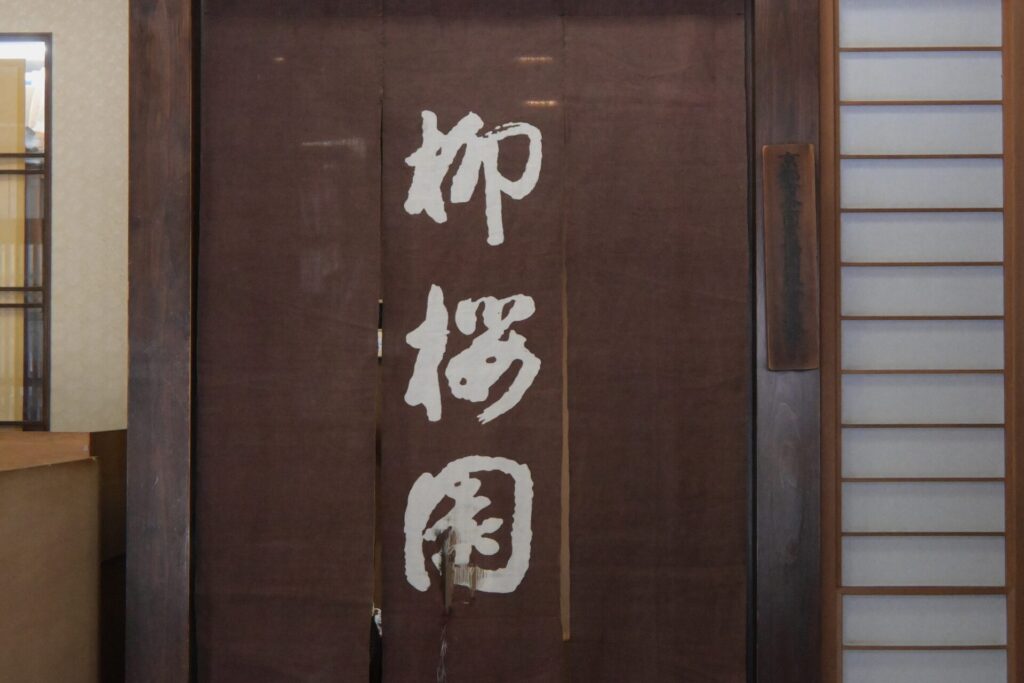 柳櫻園